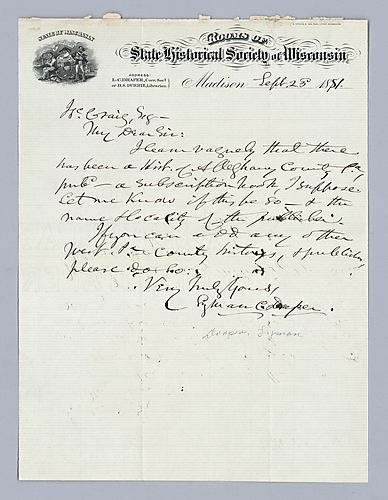 STATE OF WISCONSIN
ROOMS OF
State Historical Society of Wisconsin
ADDRESS:
L.C. DRAPER, Cor. Sec'y
or D.S. DURRIE, Librarian.
Madison Sept. 23 1881.
Craig, Esq—
My Dear Sir:
I learn vaguely that there
has been a Hist. of Alleghany County Pa
pubd — a subscription book I suppose.
Let me know if this be so — & the
name & locality of the publisher.
If you can add any other
West. Pa. County history, & publisher,
please do so.
Very truly Yours,
Lyman C. Draper.
Draper, Lyman